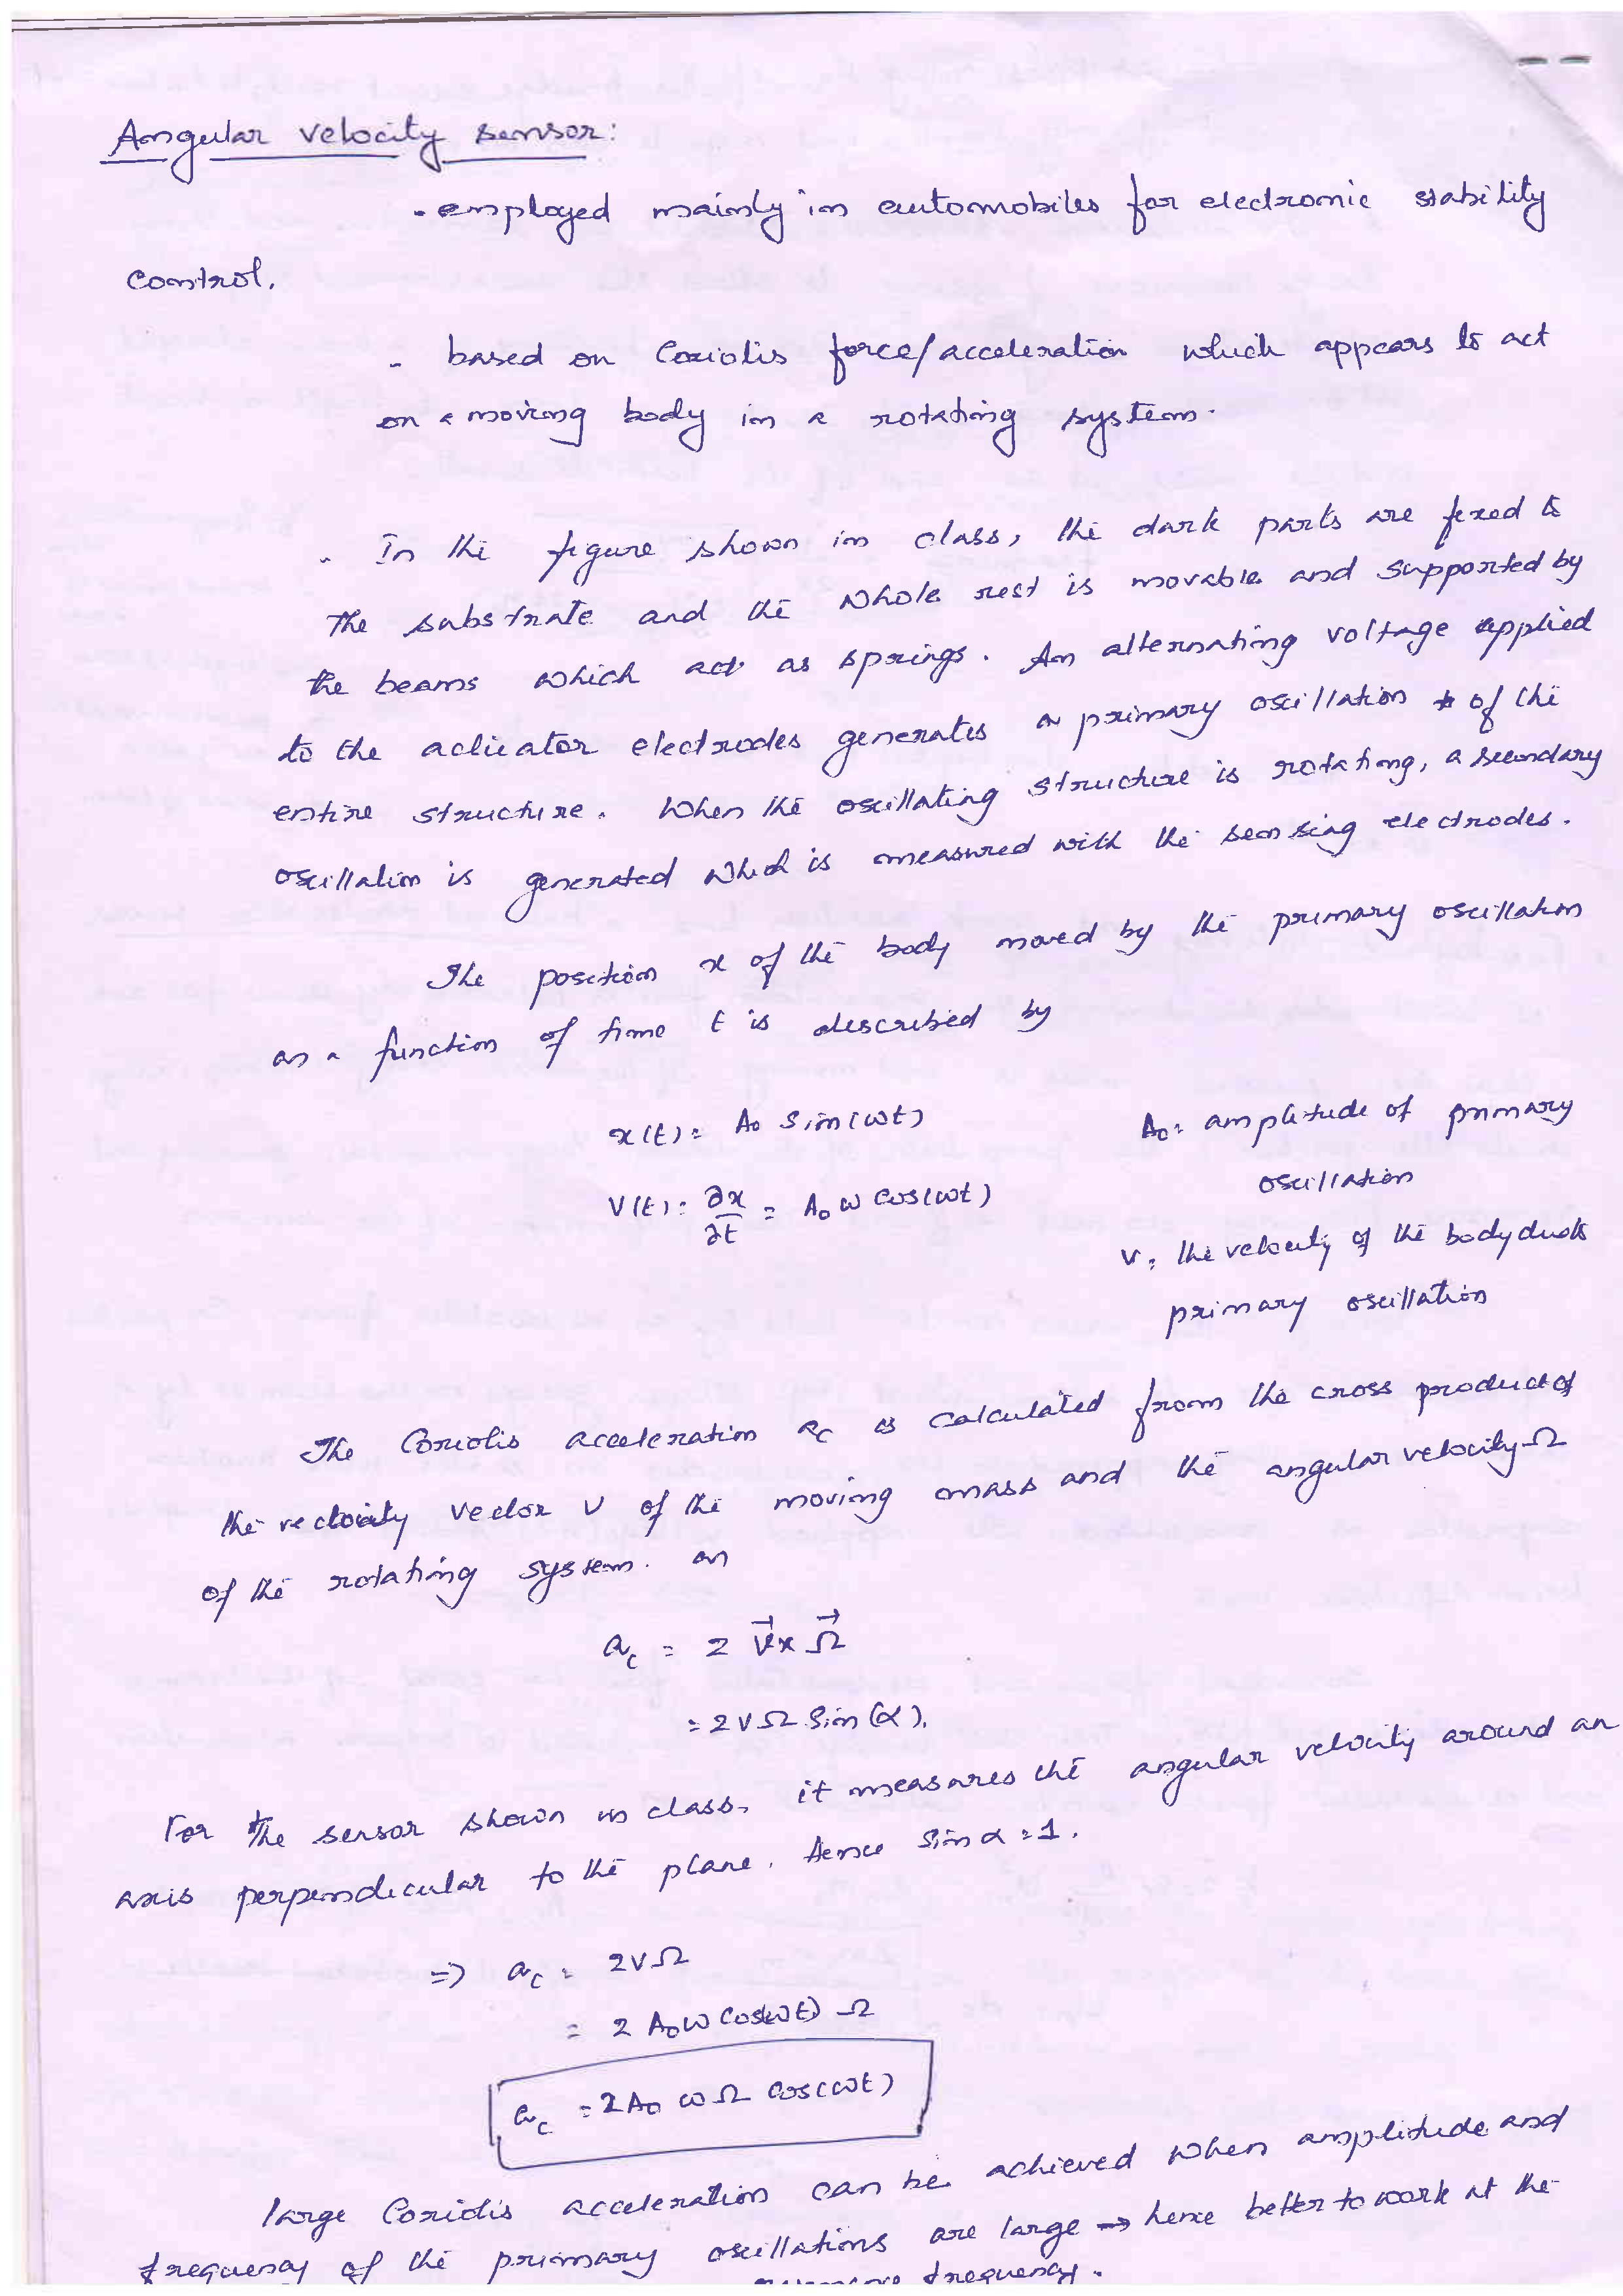 Angular velocity sensor:
- employed mainly in automobiles for electronic stability
control.
- based on Coriolis force/acceleration which appears to act
on a moving body in a rotating system.
- In the figure shown in class, the dark parts are fixed to
the substrate and the whole rest is movable and supported by
the beams which act as springs. An alternating voltage applied
to the actuator electrodes generates a primary oscillation of the
entire structure. When the oscillating structure is rotating, a secondary
oscillation is generated which is measured with the sensing electrodes.
The position x of the body moved by the primary oscillation
as a function of time t is described by
x(t) = A₀ Sin(ωt)
A₀ = amplitude of primary
oscillation
V(t) = ∂x/∂t = A₀ ω Cos(ωt)
V = the velocity of the body due to
primary oscillation
The Coriolis acceleration a_c is calculated from the cross product of
the velocity vector V of the moving mass and the angular velocity Ω
of the rotating system. as
a_c = 2 V⃗ x Ω⃗
= 2 V Ω Sin(α).
For the sensor shown in class, it measures the angular velocity around an
axis perpendicular to the plane. Hence Sin α = 1.
=> a_c = 2VΩ
= 2 A₀ω Cos(ωt) Ω
a_c = 2A₀ ωΩ Cos(ωt)
large Coriolis acceleration can be achieved when amplitude and
frequency of the primary oscillations are large → hence better to work at the
frequency.